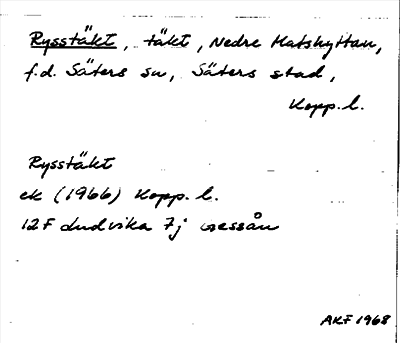 Rysstäkt, täkt, Nedre Matshyttan,
f.d. Säters sn, Säters stad,
Kopp. l.
Rysstäkt
ek (1966) Kopp. l.
12 F Ludvika 7j
AKF 1968